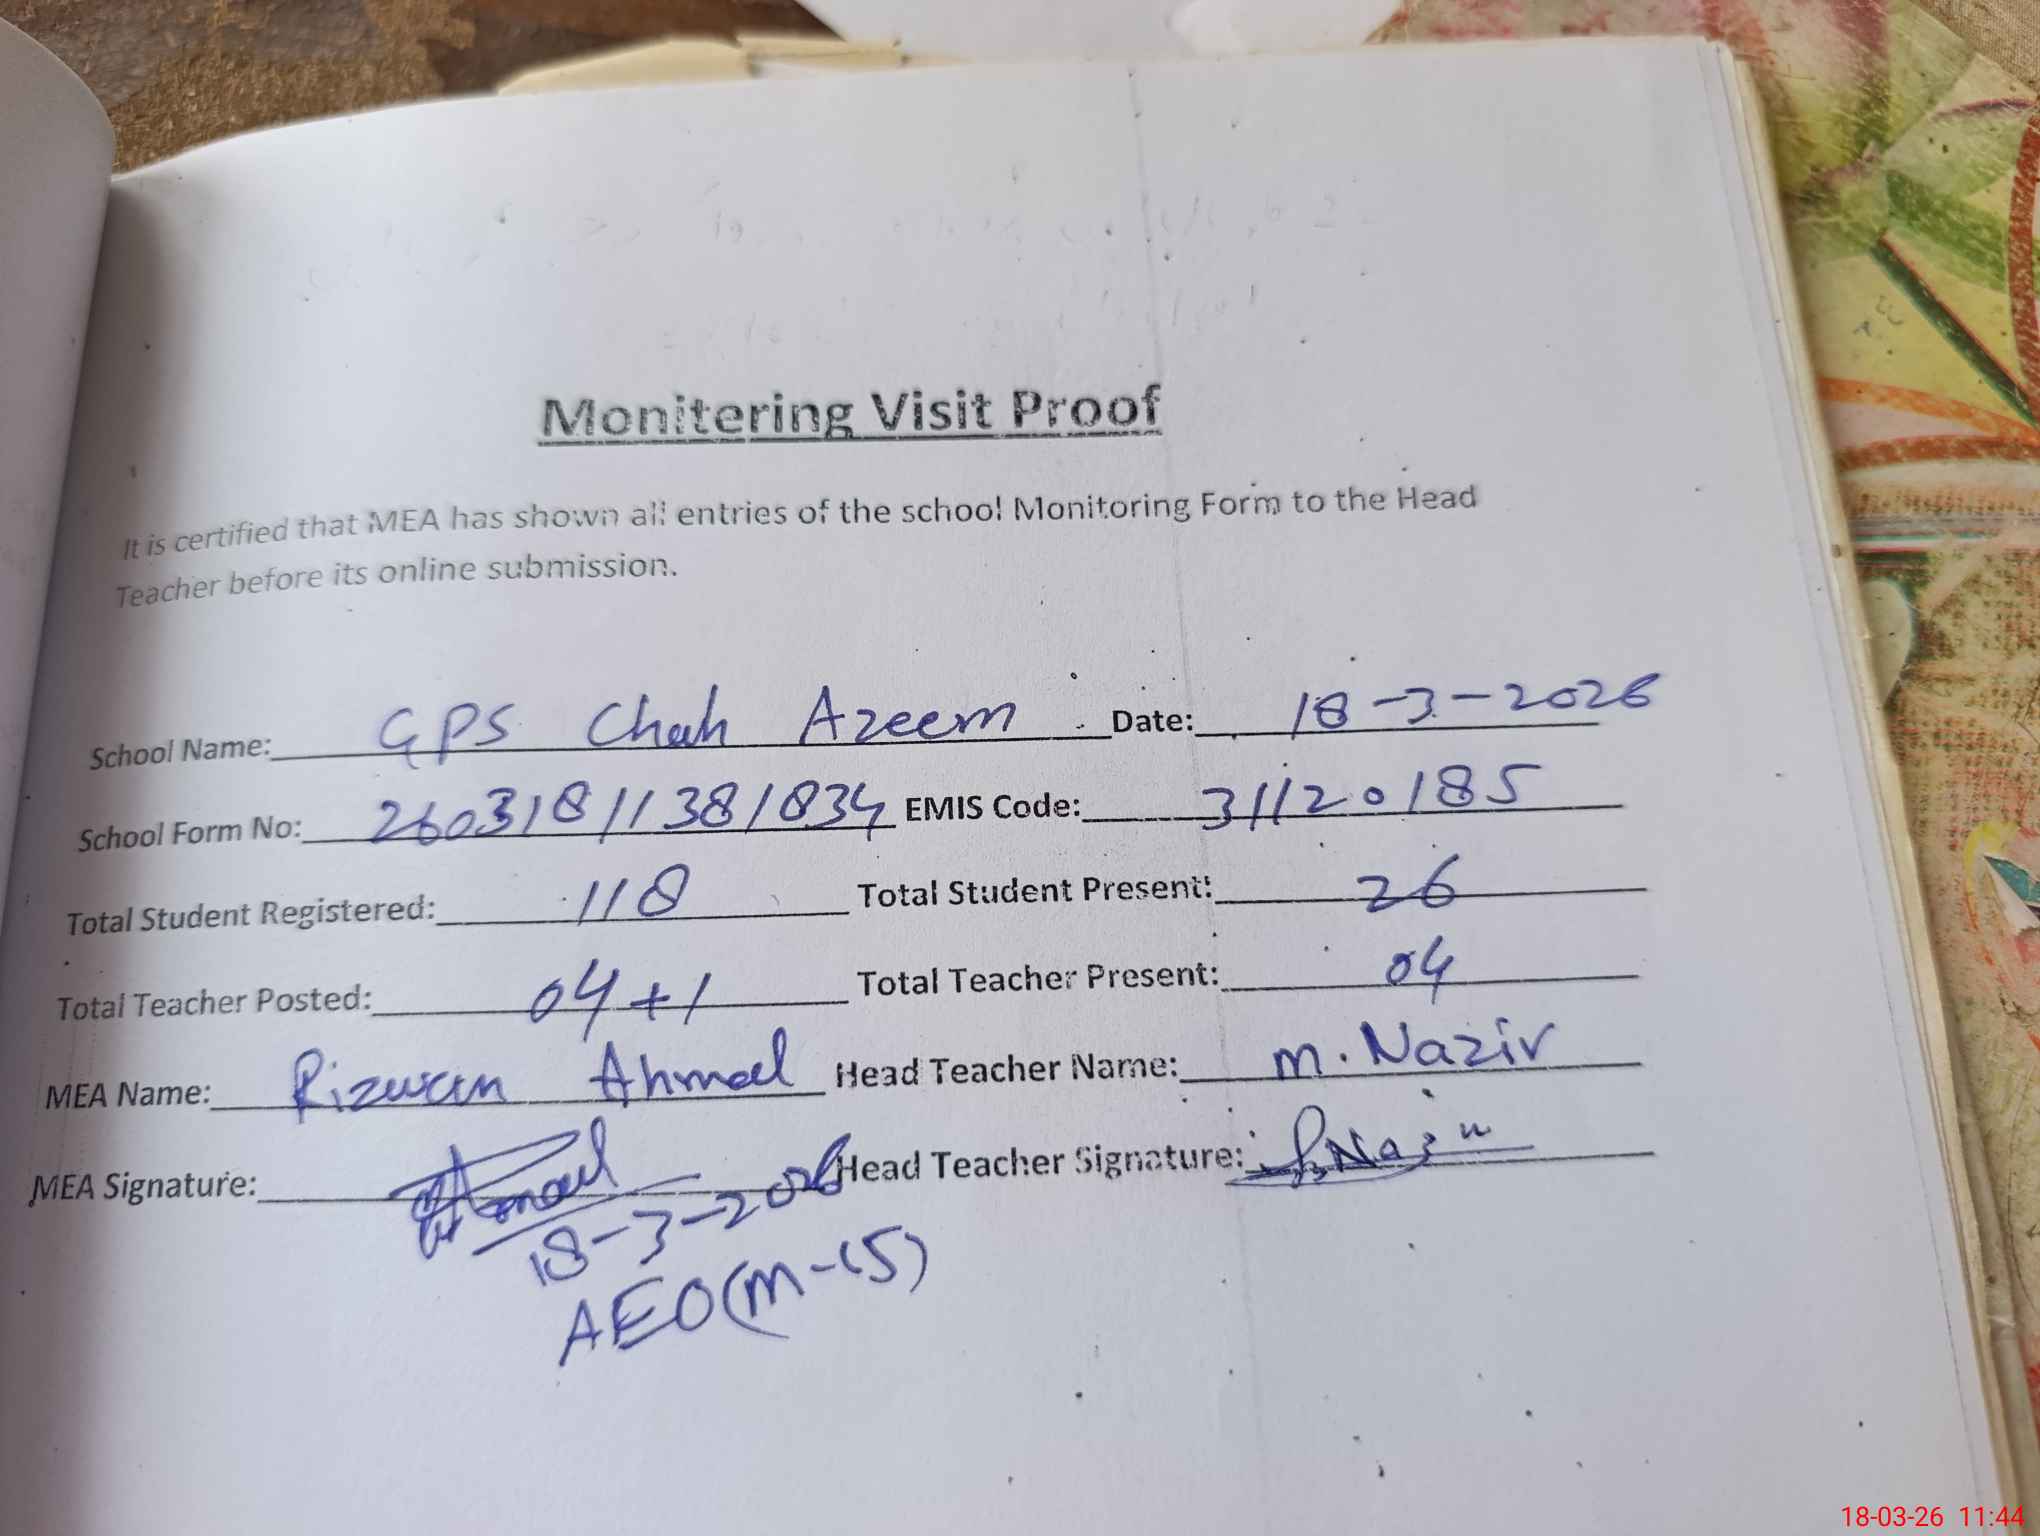 Monitering Visit Proof
It is certified that MEA has shown all entries of the school Monitoring Form to the Head
Teacher before its online submission.
School Name: GPS Chah Azeem Date: 18-3-2026
School Form No: 26031811381834 EMIS Code: 31120185
Total Student Registered: 118 Total Student Present: 26
Total Teacher Posted: 04+1 Total Teacher Present: 04
MEA Name: Rizwan Ahmad Head Teacher Name: M. Nazir
MEA Signature: Head Teacher Signature:
18-3-2026
AEO(M-15)
18-03-26 11:44